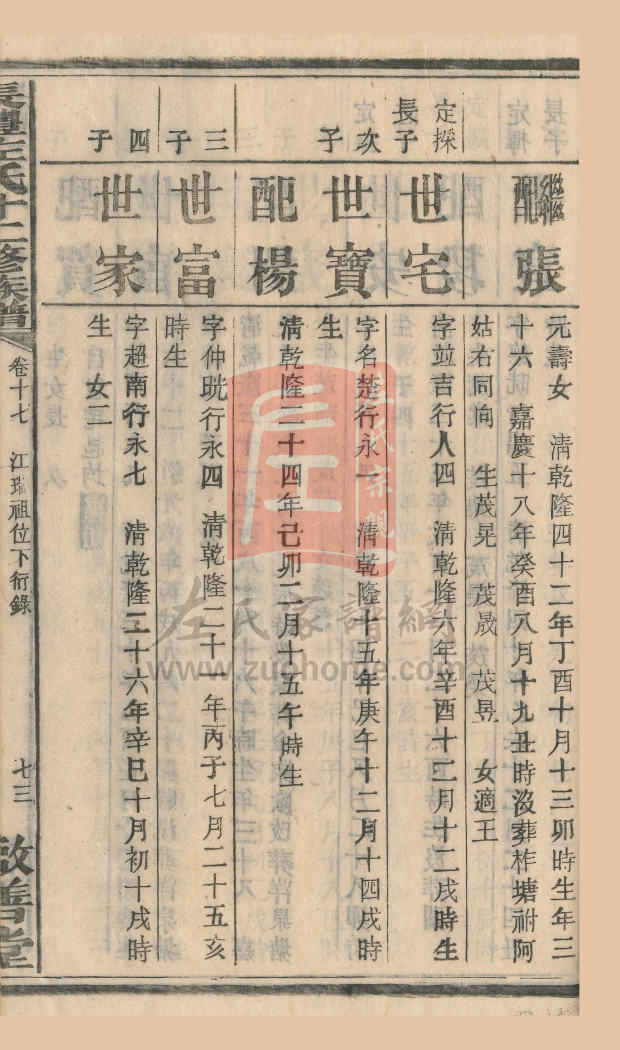 繼配張
元壽女 清乾隆四十二年丁酉十月十三卯時生年三
十六 嘉慶十八年癸酉八月十九丑時沒葬柞塘祔阿
姑右同向 生茂晃 茂晟 茂昱 女適王
定探長子
世宅
字竝吉行人四 清乾隆六年辛酉十二月十二戌時生
次子
世寶
字名楚行永一 清乾隆十五年庚午十二月十四戌時
生
配楊
清乾隆二十四年己卯二月十五午時生
三子
世富
字仲珖行永四 清乾隆二十一年丙子七月二十五亥
時生
四子
世家
字超南行永七 清乾隆二十六年辛巳十月初十戌時
生 女二
長醴左氏十二修族譜
卷十七 江瑞祖位下衍錄
七三
啟善堂
左氏家譜網
www.zuohome.com